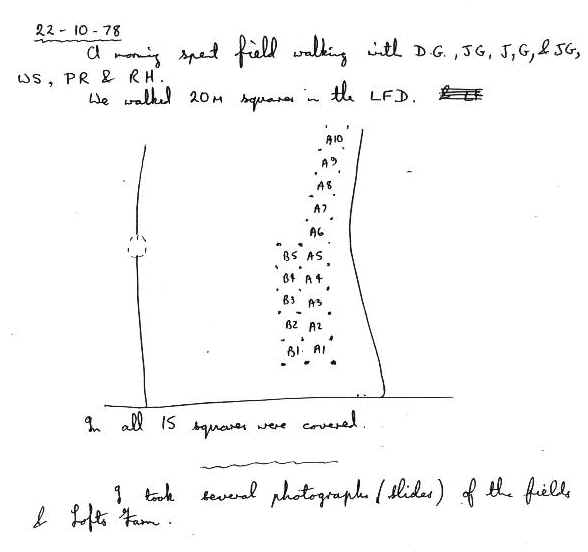 22-10-78
A morning spent field walking with D.G., JG, J,G, & JG,
WS, PR & RH.
We walked 20M squares in the LFD.
A10
A9
A8
A7
A6
B5 A5
B4 A4
B3 A3
B2 A2
B1 A1
In all 15 squares were covered.
I took several photographs (slides) of the fields
& Lofts Farm.